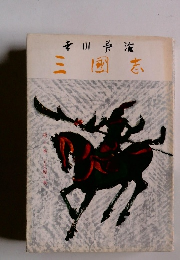 吉川英治
三國志